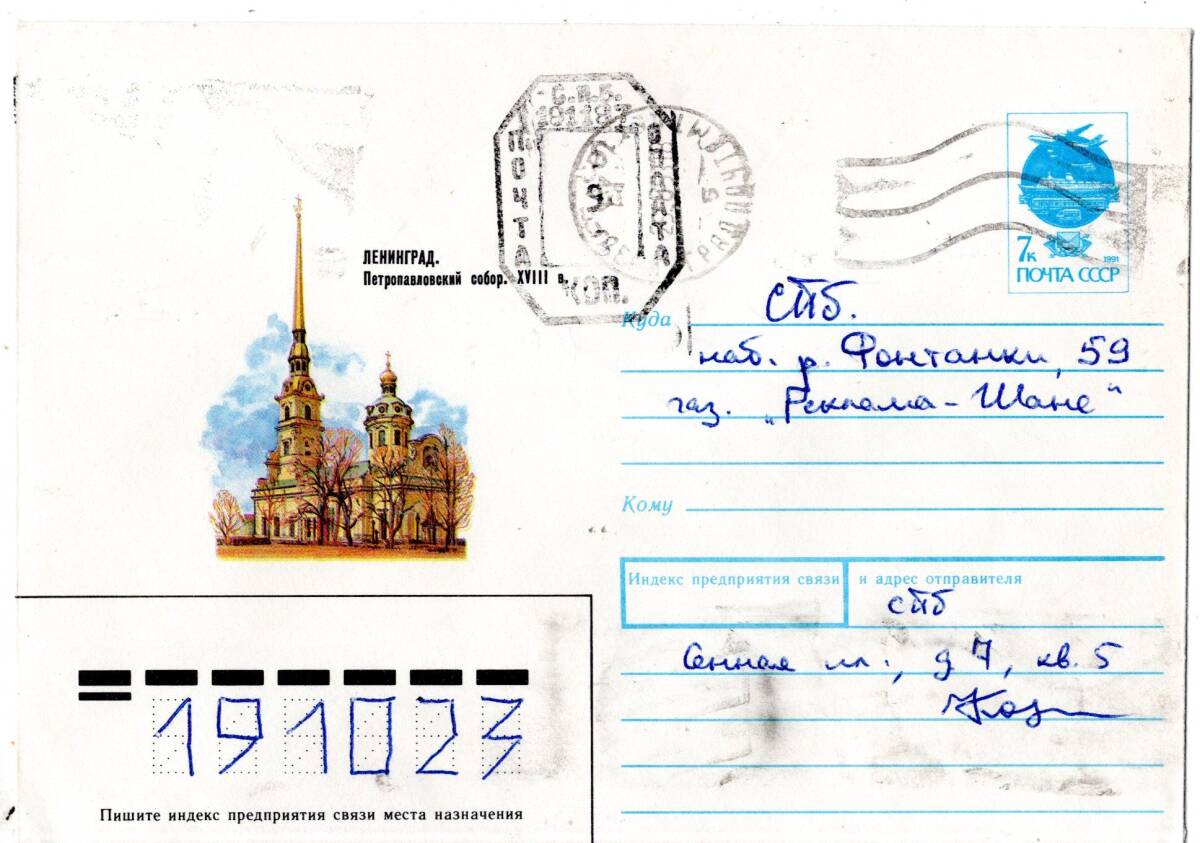 С.П.Б.
191187
ПОЧТА
ОПЛАТА
КОП.
7к
1991
ПОЧТА СССР
ЛЕНИНГРАД.
Петропавловский собор. XVIII в.
Куда СПб.
наб. р. Фонтанки, 59
газ. „Реклама-Шанс"
Кому
Индекс предприятия связи и адрес отправителя
СПб
Сенная пл., д 7, кв. 5
191023
Пишите индекс предприятия связи места назначения